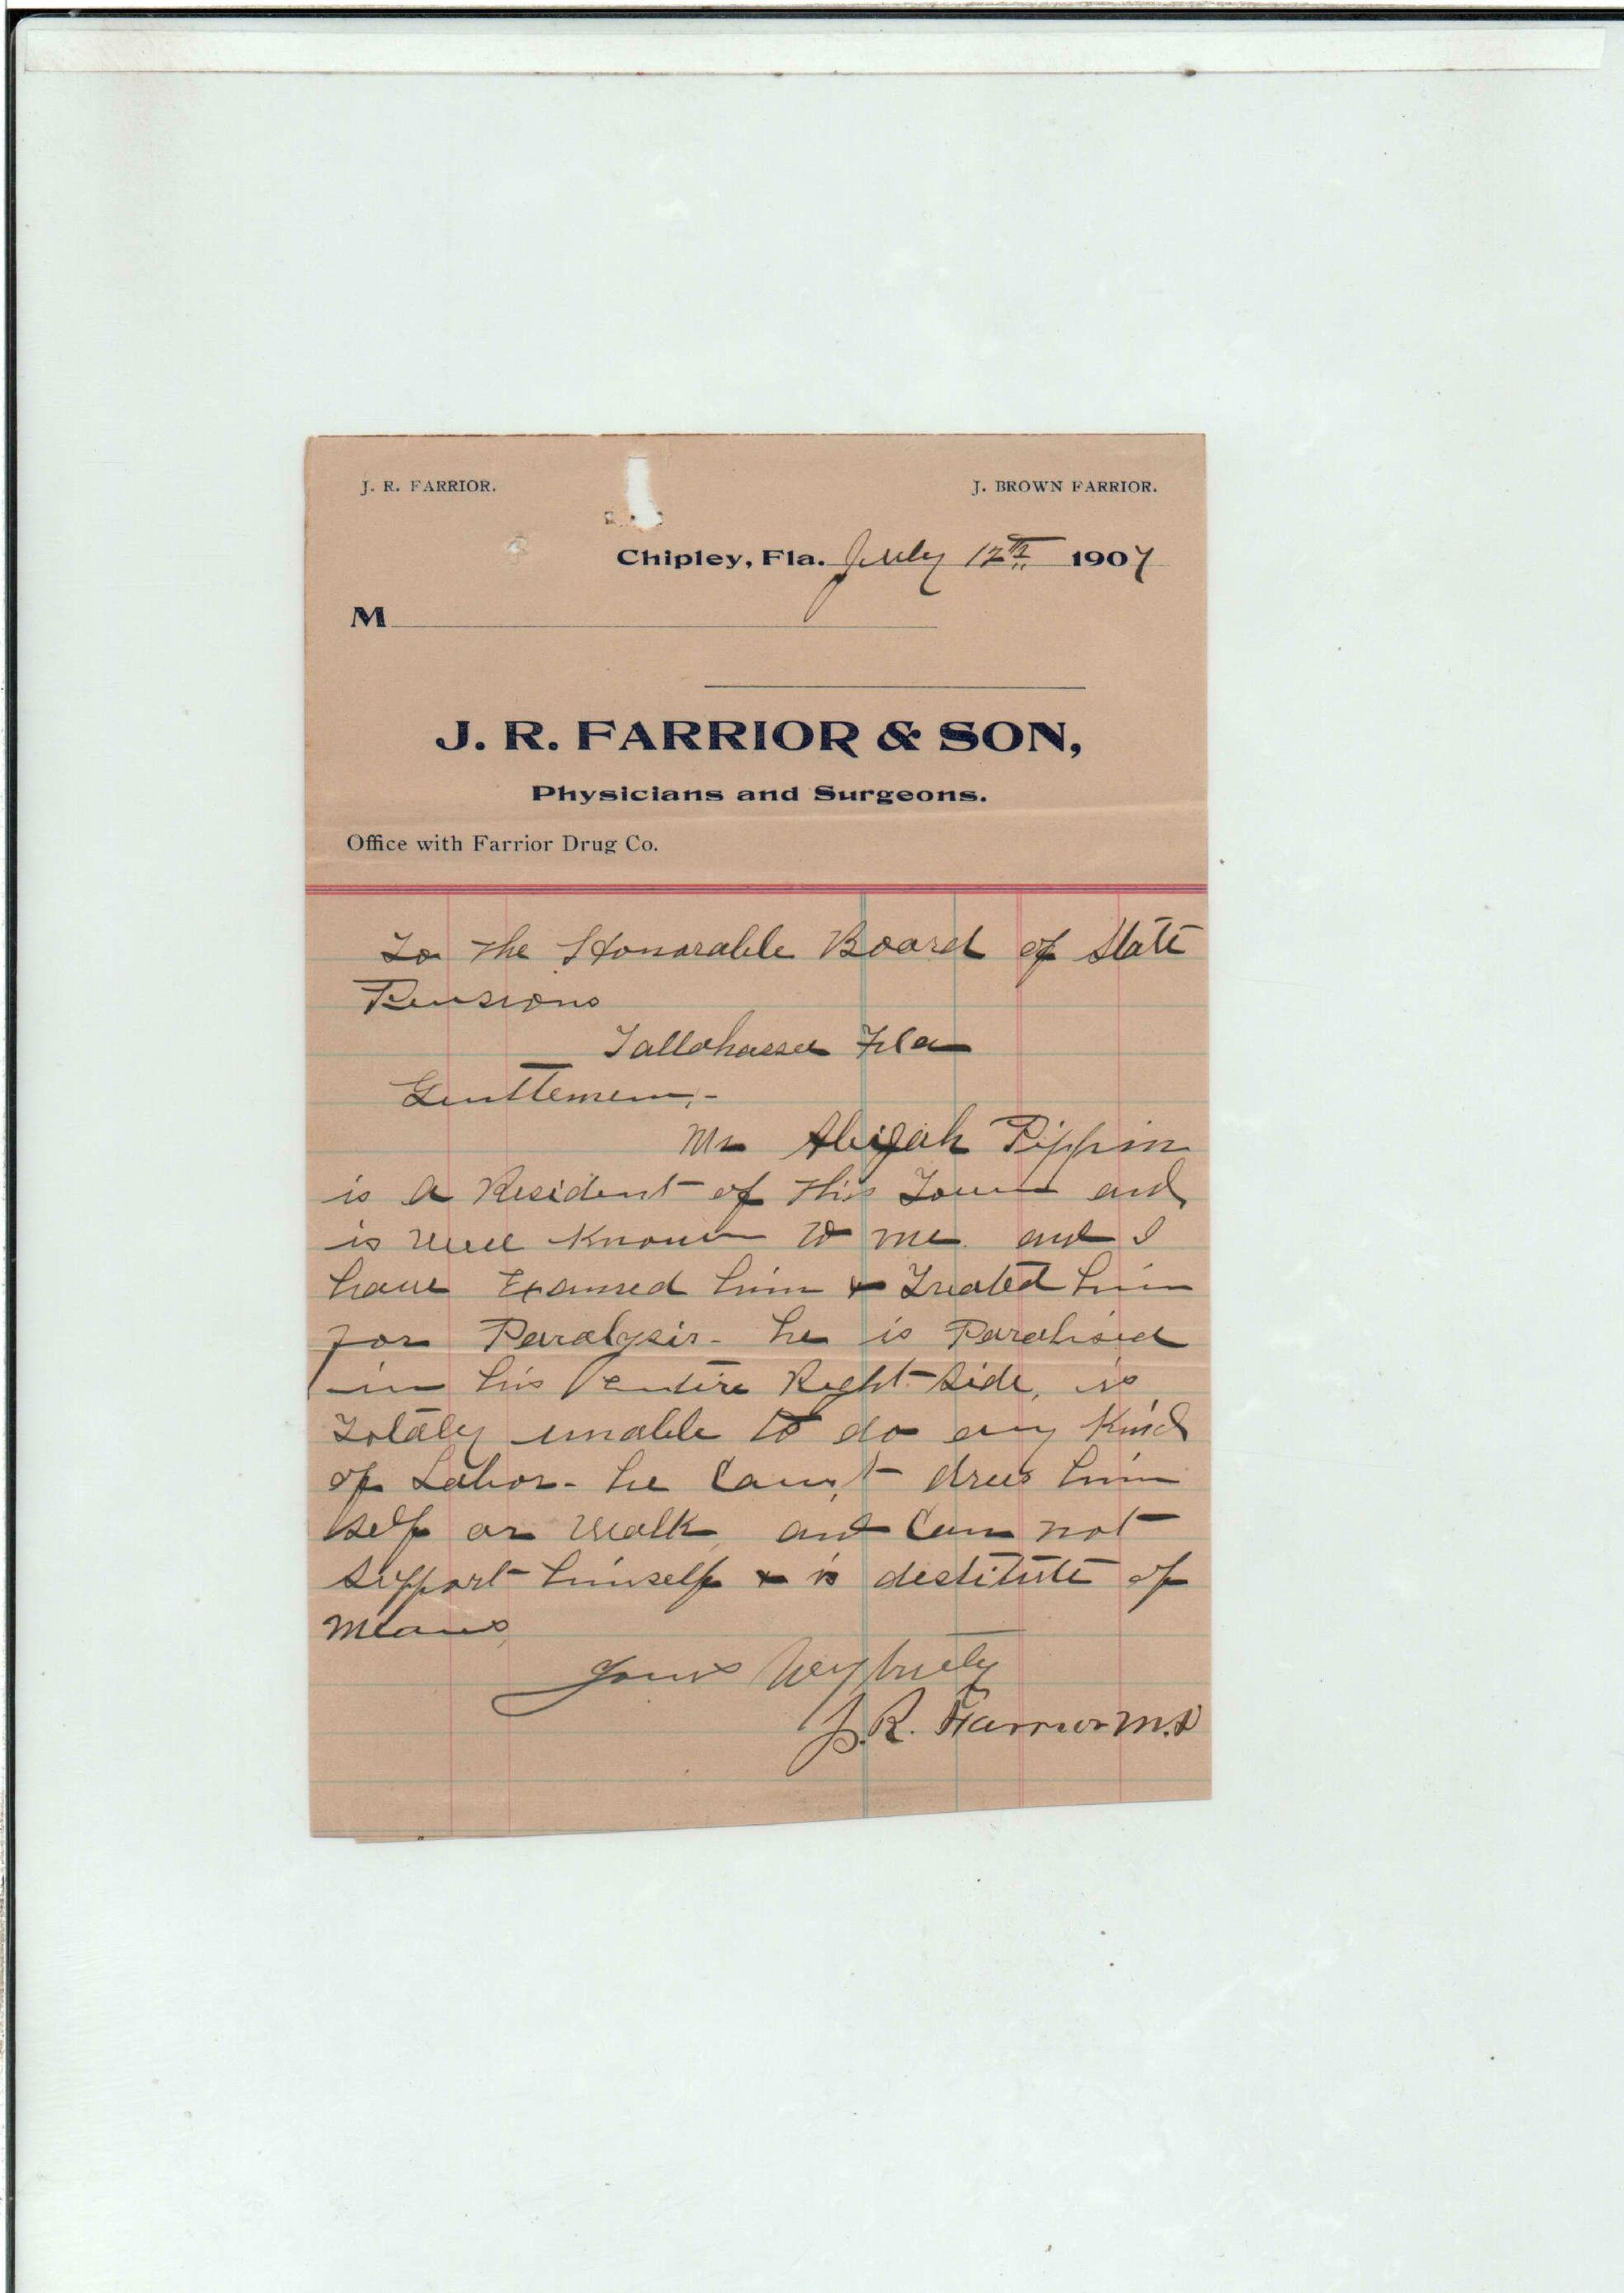 J. R. FARRIOR. J. BROWN FARRIOR.
Chipley, Fla. July 12th 1907
M
J. R. FARRIOR & SON,
Physicians and Surgeons.
Office with Farrior Drug Co.
To the Honorable Board of State
Pensions
Tallahassee Fla
Gentlemen,-
Mr Abijah Pippin
is a Resident of this Town and
is well Known to me. and I
have Examed him & Treated him
for Paralysis - he is Paralised
in his entire Right side, is
Totaly unable to do any Kind
of Labor - he Can,t dress him
self or walk, and Can not
support himself & is destitute of
means,
Yours Very truly
J. R. Farrior M.D